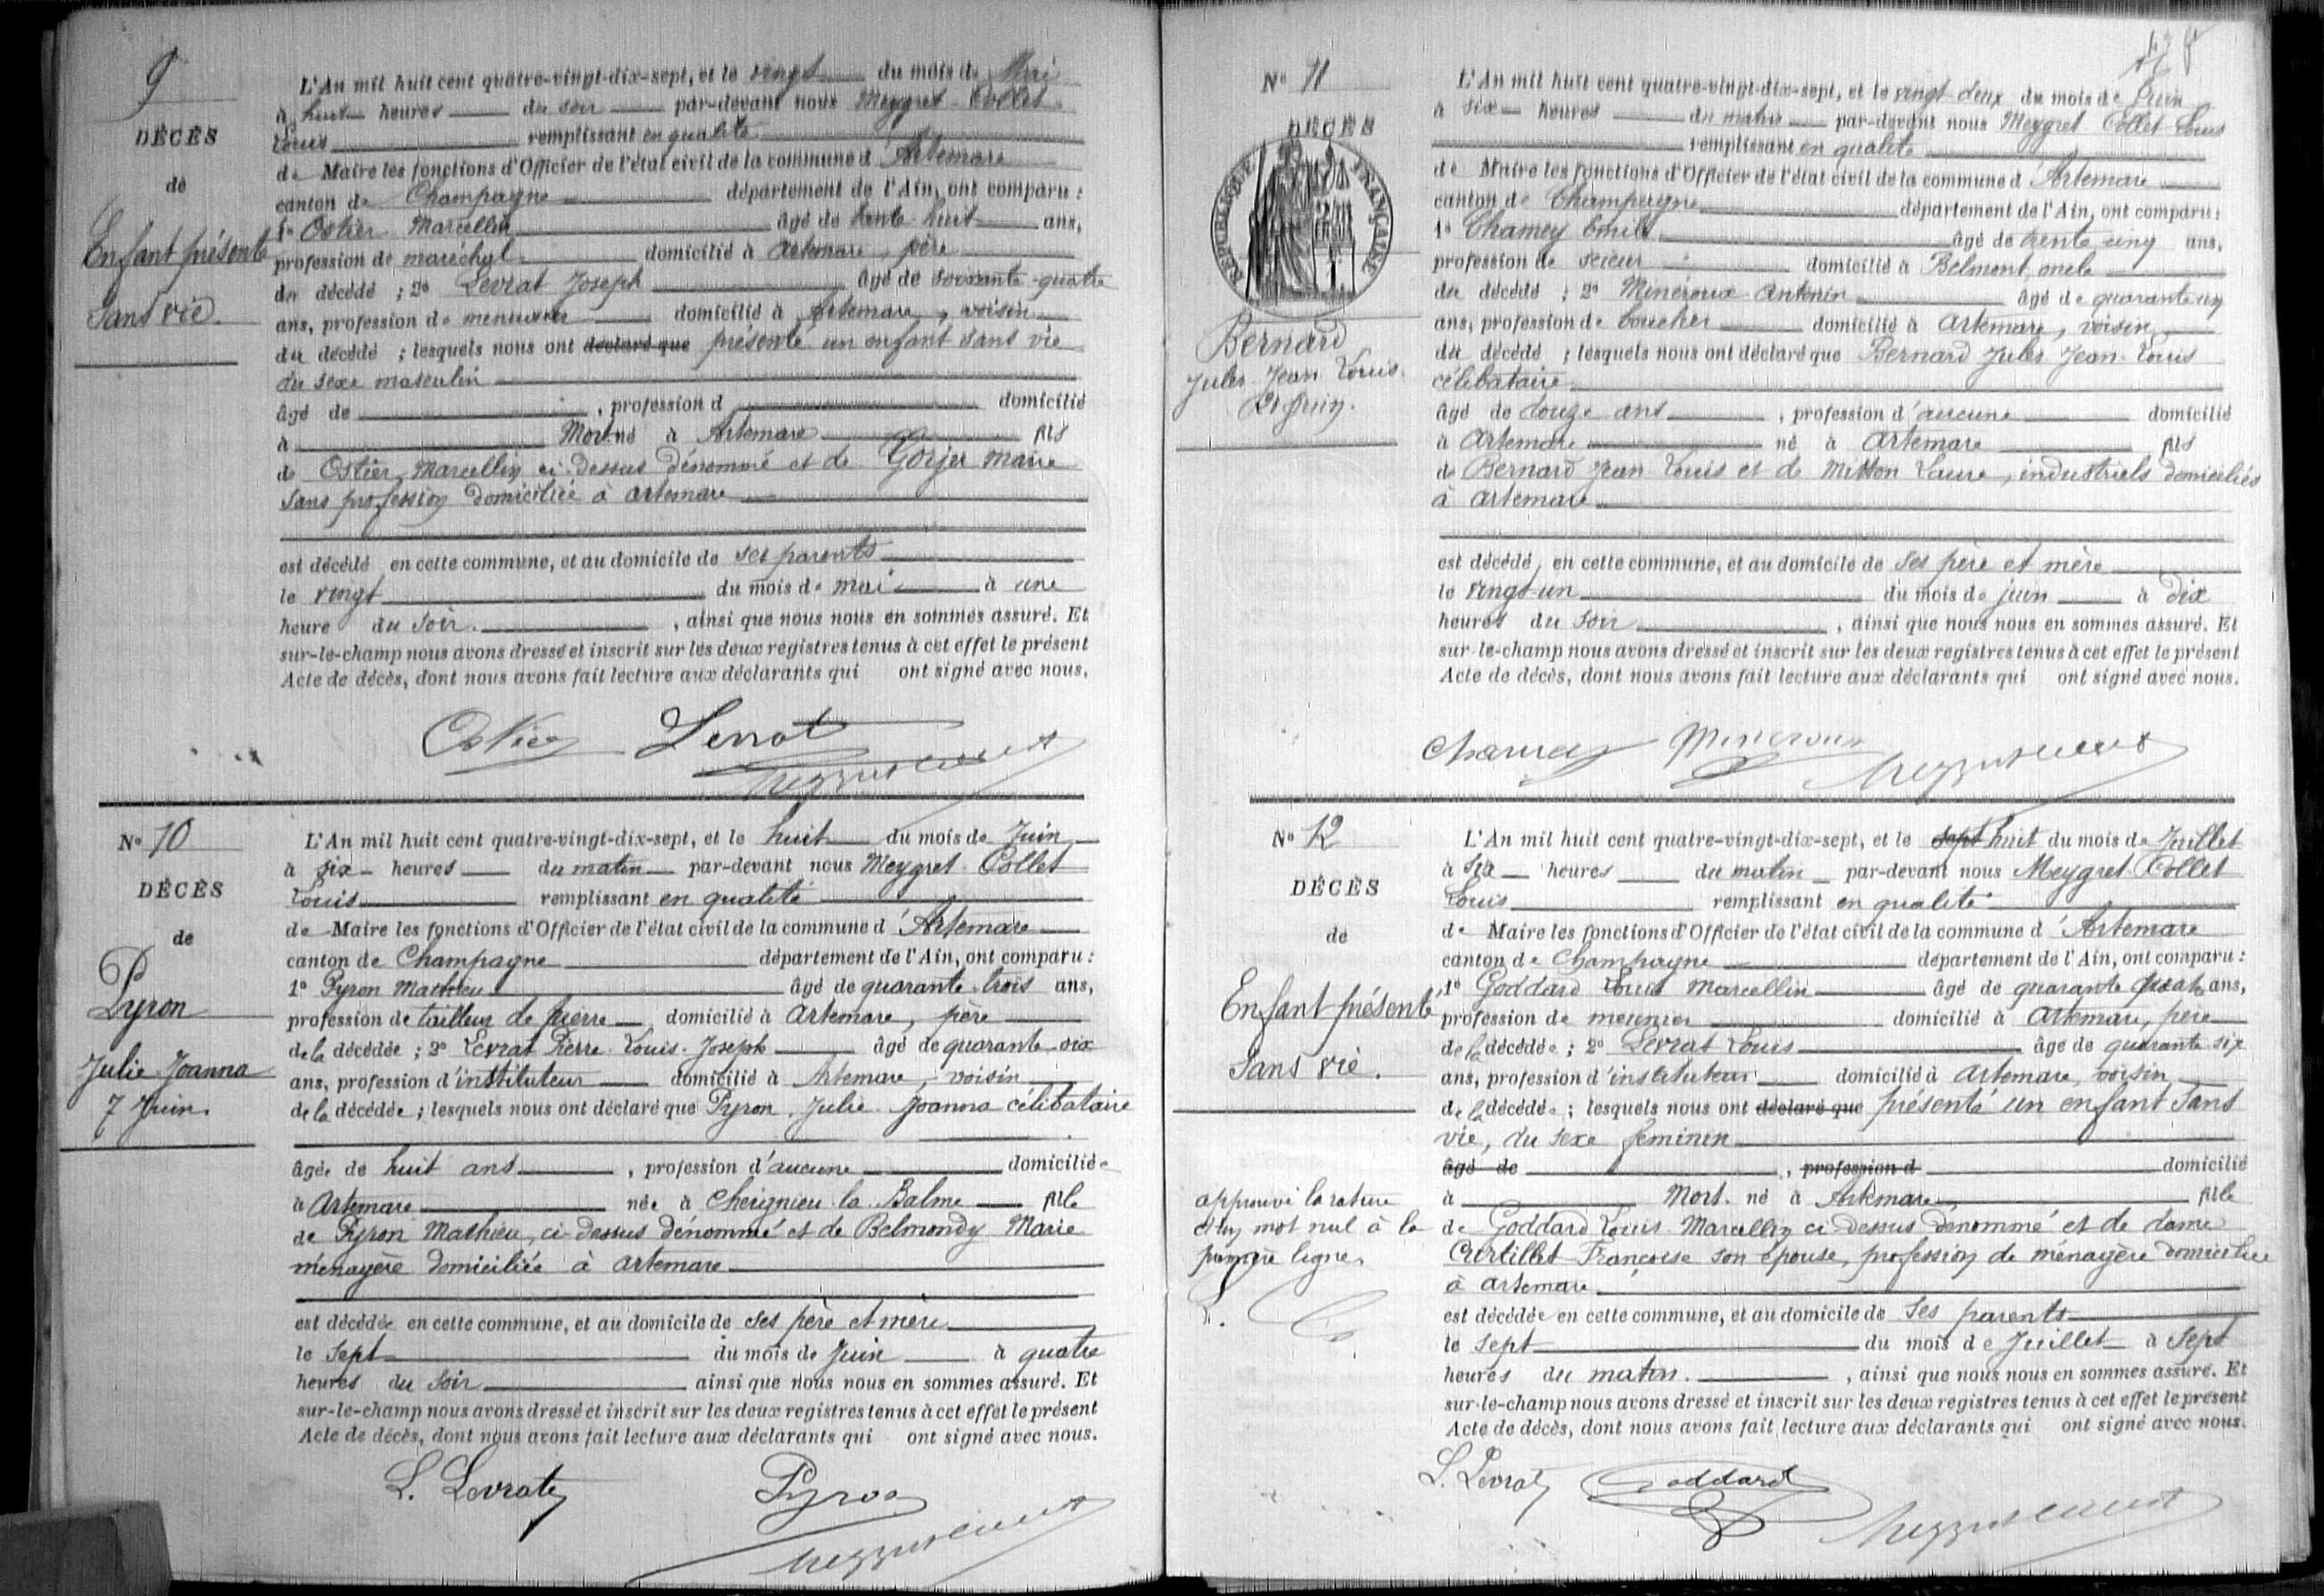 9
DÉCÈS
de
Enfant présenté
Sans vie.
L'An mil huit cent quatre-vingt-dix-sept, et le vingt du mois de Mai
à huit heures du soir par-devant nous Meygret-Collet
Louis remplissant en qualité
de Maire les fonctions d'Officier de l'état civil de la commune d'Artemare
canton de Champagne département de l'Ain, ont comparu :
1º Ostier Marcellin âgé de trente-huit ans,
profession de maréchal domicilié à Artemare, père
du décédé ; 2º Levrat Joseph âgé de soixante-quatre
ans, profession de menuisier domicilié à Artemare, voisin
du décédé ; lesquels nous ont déclaré que présenté un enfant sans vie
du sexe masculin
âgé de , profession d domicilié
à Mort-né à Artemare fils
de Ostier Marcellin ci-dessus dénommé et de Gorjer Marie
sans profession domiciliée à Artemare
est décédé en cette commune, et au domicile de ses parents
le vingt du mois de mai à une
heure du soir. , ainsi que nous nous en sommes assuré. Et
sur-le-champ nous avons dressé et inscrit sur les deux registres tenus à cet effet le présent
Acte de décès, dont nous avons fait lecture aux déclarants qui ont signé avec nous.
Ostier Levrat
Nº 10
DÉCÈS
de
Pyron
Julie-Joanna
7 Juin.
L'An mil huit cent quatre-vingt-dix-sept, et le huit du mois de Juin
à six heures du matin par-devant nous Meygret-Collet
Louis remplissant en qualité
de Maire les fonctions d'Officier de l'état civil de la commune d'Artemare
canton de Champagne département de l'Ain, ont comparu :
1º Pyron Mathieu âgé de quarante-trois ans,
profession de tailleur de pierre domicilié à Artemare, père
de la décédée ; 2º Levrat Pierre-Louis-Joseph âgé de quarante-six
ans, profession d'instituteur domicilié à Artemare, voisin
de la décédée ; lesquels nous ont déclaré que Pyron, Julie-Joanna célibataire
âgée de huit ans , profession d'aucune domiciliée
à Artemare née à Cheignieu-la-Balme fille
de Pyron Mathieu, ci-dessus dénommé et de Belmondy Marie
ménagère domiciliée à Artemare
est décédée en cette commune, et au domicile de ses père et mère
le sept du mois de Juin à quatre
heures du soir ainsi que nous nous en sommes assuré. Et
sur-le-champ nous avons dressé et inscrit sur les deux registres tenus à cet effet le présent
Acte de décès, dont nous avons fait lecture aux déclarants qui ont signé avec nous.
L. Levrat Pyron
Nº 11
DÉCÈS
RÉPUBLIQUE FRANÇAISE
Bernard
Jules Jean-Louis.
21 Juin.
L'An mil huit cent quatre-vingt-dix-sept, et le vingt-deux du mois de Juin
à six heures du matin par-devant nous Meygret-Collet Louis
remplissant en qualité
de Maire les fonctions d'Officier de l'état civil de la commune d'Artemare
canton de Champagne département de l'Ain, ont comparu :
1º Chamey Emile âgé de trente cinq ans,
profession de scieur domicilié à Belmont, oncle
du décédé ; 2º Mineroux Antonin âgé de quarante un
ans, profession de boucher domicilié à Artemare, voisin
du décédé ; lesquels nous ont déclaré que Bernard Jules Jean-Louis
célibataire
âgé de douze ans , profession d'aucune domicilié
à Artemare né à Artemare fils
de Bernard Jean-Louis et de Mitton Laure, industriels domiciliés
à Artemare
est décédé, en cette commune, et au domicile de ses père et mère
le vingt-un du mois de juin à dix
heures du soir , ainsi que nous nous en sommes assuré. Et
sur-le-champ nous avons dressé et inscrit sur les deux registres tenus à cet effet le présent
Acte de décès, dont nous avons fait lecture aux déclarants qui ont signé avec nous.
Chamey Mineroux
Nº 12
DÉCÈS
de
Enfant présenté
Sans vie.
approuvé la rature
d'un mot nul à la
première ligne.
L'An mil huit cent quatre-vingt-dix-sept, et le sept huit du mois de Juillet
à six heures du matin par-devant nous Meygret-Collet
Louis remplissant en qualité
de Maire les fonctions d'Officier de l'état civil de la commune d'Artemare
canton de Champagne département de l'Ain, ont comparu :
1º Goddard Louis Marcellin âgé de quarante quatre ans,
profession de meunier domicilié à Artemare, père
de la décédée ; 2º Levrat Louis âgé de quarante-six
ans, profession d'instituteur domicilié à Artemare, voisin
de la décédée ; lesquels nous ont déclaré que présenté un enfant sans
vie, du sexe féminin
âgé de , profession d domicilié
à Mort-né à Artemare, fille
de Goddard Louis-Marcellin ci-dessus dénommé et de dame
Curtillet Françoise son épouse, profession de ménagère domiciliée
à Artemare
est décédée en cette commune, et au domicile de ses parents
le sept du mois de Juillet à sept
heures du matin. , ainsi que nous nous en sommes assuré. Et
sur-le-champ nous avons dressé et inscrit sur les deux registres tenus à cet effet le présent
Acte de décès, dont nous avons fait lecture aux déclarants qui ont signé avec nous.
L. Levrat Goddard